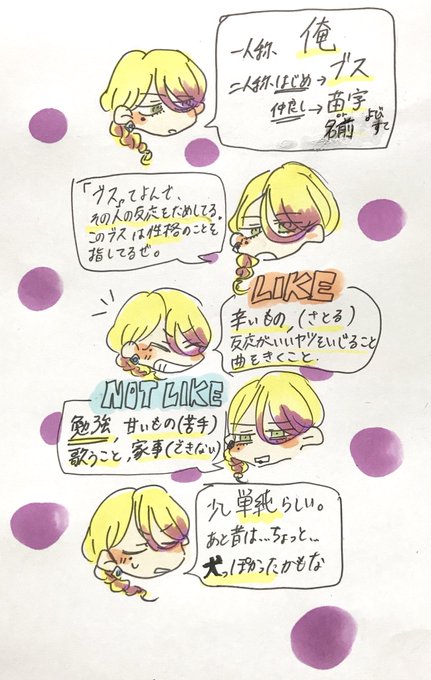 一人称、俺
二人称、はじめ→ブス
仲良し→苗字
名前 よびすて
「ブス」てよんで、
その人の反応をためしてる。
このブスは性格のことを
指してるぜ。
LIKE
辛いもの,(さとる)
反応がいいヤツをいじること
曲をきくこと.
NOT LIKE
勉強,甘いもの(苦手)
歌うこと,家事(できない)
少し単純らしい。
あと昔は...ちょっと...
犬っぽかったかもな